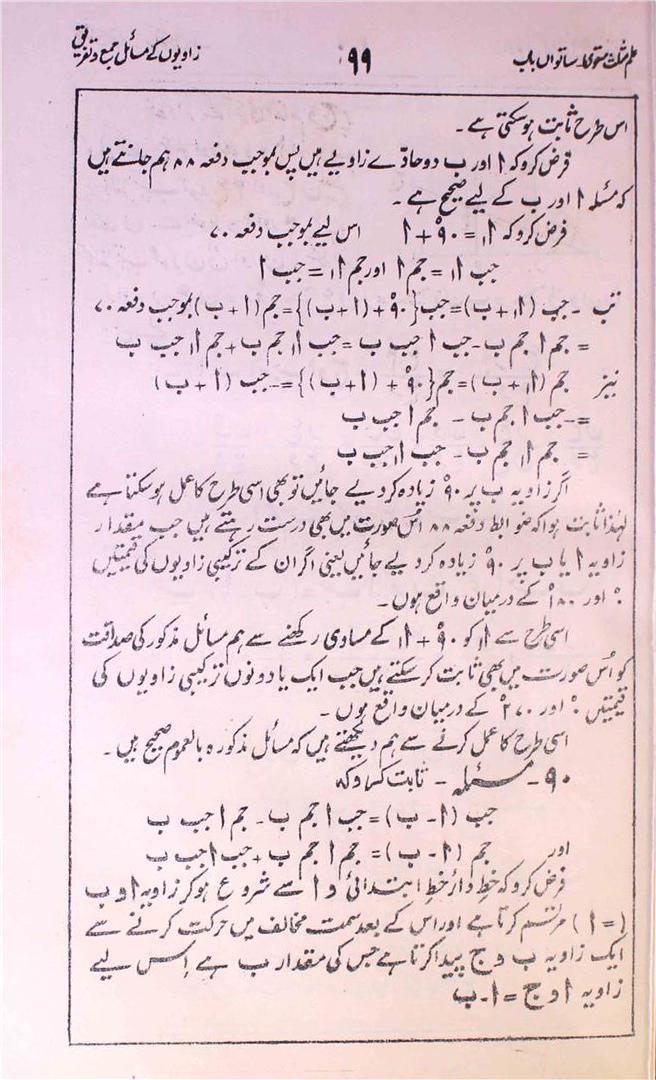 علم مثلث مستوی۔ ساتواں باب ۹۹ زاویوں کے مسائل جمع و تفریق
اس طرح ثابت ہوسکتی ہے۔
فرض کرو کہ ا اور ب دو حادّے زاویے ہیں پس بموجب دفعہ ۸۸ ہم جانتے ہیں
کہ مسئلہ ا اور ب کے لیے صحیح ہے۔
فرض کرو کہ ا₁ = ۹۰° + ا اس لیے بموجب دفعہ ۷۰
جب ا₁ = جم ا اور جم ا₁ = جب ا
تب - جب (ا₁ + ب) = جب {۹۰° + (ا + ب)} = جم (ا + ب) بموجب دفعہ ۷۰
= جم ا جم ب - جب ا جب ب = جب ا₁ جم ب + جم ا₁ جب ب
نیز جم (ا₁ + ب) = جم {۹۰° + (ا + ب)} = - جب (ا + ب)
= - جب ا جم ب - جم ا جب ب
= جم ا₁ جم ب - جب ا₁ جب ب
اگر زاویہ ب پر ۹۰° زیادہ کردیے جائیں تو بھی اسی طرح کا عمل ہوسکتا ہے
لہٰذا ثابت ہوا کہ ضوابط دفعہ ۸۸ اُس صورت میں بھی درست رہتے ہیں جب مقدار
زاویہ ا یا ب پر ۹۰° زیادہ کردیے جائیں یعنی اگر ان کے ترکیبی زاویوں کی قیمتیں
۰° اور ۱۸۰° کے درمیان واقع ہوں۔
اسی طرح سے ا₁ کو ۹۰° + ا₁ کے مساوی رکھنے سے ہم مسائل مذکور کی صداقت
کو اُس صورت میں بھی ثابت کرسکتے ہیں جب ایک یا دونوں ترکیبی زاویوں کی
قیمتیں ۰° اور ۲۷۰° کے درمیان واقع ہوں۔
اسی طرح کا عمل کرنے سے ہم دیکھتے ہیں کہ مسائل مذکورہ بالعموم صحیح ہیں۔
۹۰۔ مسئلہ۔ ثابت کرو کہ
جب (ا - ب) = جب ا جم ب - جم ا جب ب
اور جم (ا - ب) = جم ا جم ب + جب ا جب ب
فرض کرو کہ خطِ دائر خطِ ابتدائی و ا سے شروع ہوکر زاویہ ا و ب
(= ا) مرتسم کرتا ہے اور اس کے بعد سمت مخالف میں حرکت کرنے سے
ایک زاویہ ب و ج پیدا کرتا ہے جس کی مقدار ب ہے اِس لیے
زاویہ ا و ج = ا - ب